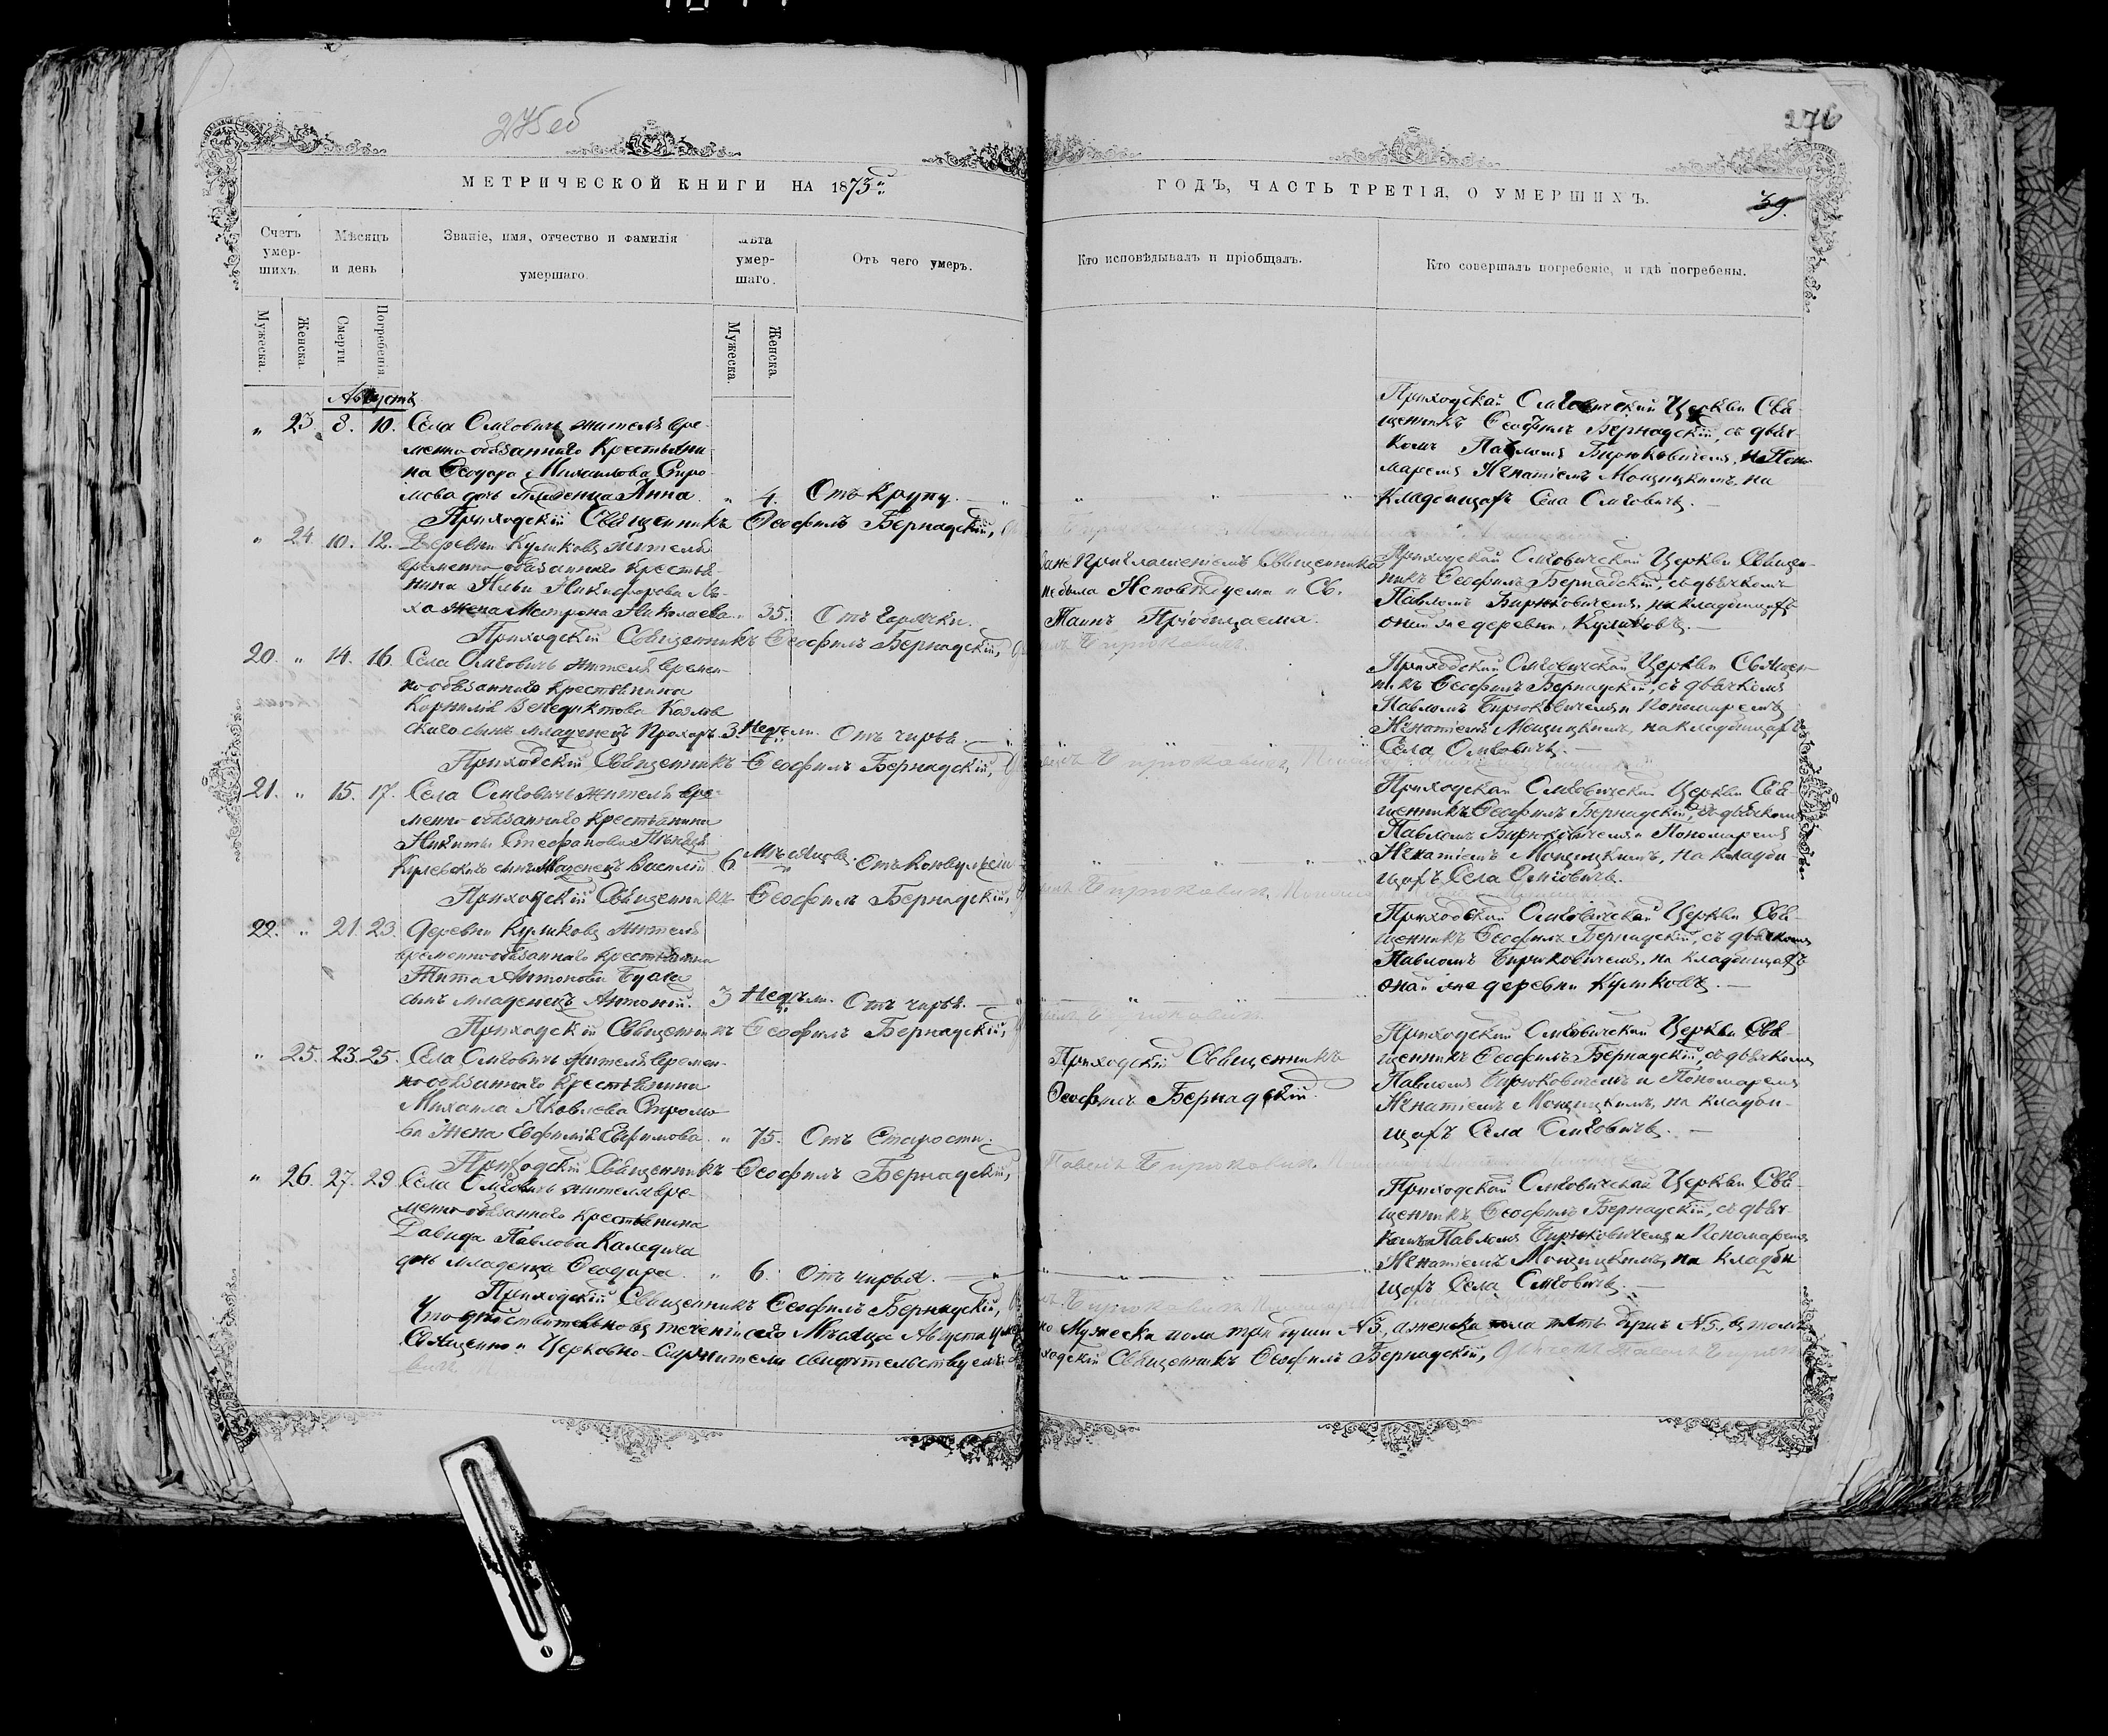 275 об
276
МЕТРИЧЕСКОЙ КНИГИ НА 1873
ГОДЪ, ЧАСТЬ ТРЕТІЯ, О УМЕРШИХЪ.
39.
Счетъ умер-шихъ.
Мѣсяцъ и день
Званіе, имя, отчество и фамилія умершаго.
лѣта умер-шаго.
Отъ чего умеръ.
Кто исповѣдывалъ и пріобщалъ.
Кто совершалъ погребеніе, и гдѣ погребены.
Мужеска.
Женска.
Смерти.
Погребенія.
Мужеска.
Женска.
Августъ
" 23. 8. 10. Села Омговичъ жителя вре-
менно обязаннаго Крестьяни-
на Ѳеодора Михаилова
дочь младенца Анна. " 4. Отъ Крупу.
Приходской Омговичской Церкви Свя-
щенникъ Ѳеофилъ Бернадскій, съ дьяч-
комъ Павломъ Бирюковичемъ, и Поно-
маремъ Игнатіемъ Мощицкимъ, на
Кладбищахъ Села Омговичъ.
Приходскій Священникъ Ѳеофилъ Бернадскій,
" 24. 10. 12. Деревни Куликовъ жителя
временно обязаннаго крестья-
нина Ильи Никифорова
жена Матрона Николаева. " 35. Отъ Горячки.
Приглашеніемъ Священника
не была Исповѣдуема и Св.
Таинъ Пріобщаема.
Приходской Омговичской Церкви Священ-
никъ Ѳеофилъ Бернадскій, съ дьячкомъ
Павломъ Бирюковичемъ, на кладбищахъ
оной же деревни Куликовъ.
Приходскій Священникъ Ѳеофилъ Бернадскій,
20. " 14. 16. Села Омговичъ жителя времен-
но обязаннаго крестьянина
Корнилія Венедиктова Козлов-
скаго сынъ младенецъ Прохоръ. 3. Недѣли. Отъ чирья.
Приходской Омговичской Церкви Священ-
никъ Ѳеофилъ Бернадскій, съ дьячкомъ
Павломъ Бирюковичемъ и Пономаремъ
Игнатіемъ Мощицкимъ, на кладбищахъ
Села Омговичъ.
Приходскій Священникъ Ѳеофилъ Бернадскій,
21. " 15. 17. Села Омговичъ жителя вре-
менно обязаннаго Крестьянина
Никиты Стефанова
сынъ Младенецъ Василій 6. Мѣсяцовъ. Отъ Конвульсіи
Приходской Омговичской Церкви Свя-
щенникъ Ѳеофилъ Бернадскій, съ дьячкомъ
Павломъ Бирюковичемъ и Пономаремъ
Игнатіемъ Мощицкимъ, на кладби-
щахъ Села Омговичъ.
Приходскій Священникъ Ѳеофилъ Бернадскій,
22. " 21. 23. Деревни Куликовъ жителя
временно обязаннаго крестьянина
Тита Антонова
сынъ младенецъ Антоній. 3 Недѣли. Отъ чирья.
Приходской Омговичской Церкви Свя-
щенникъ Ѳеофилъ Бернадскій, съ дьячкомъ
Павломъ Бирюковичемъ, на кладбищахъ
оной же деревни Куликовъ.
Приходскій Священникъ Ѳеофилъ Бернадскій,
" 25. 23. 25. Села Омговичъ жителя времен-
но обязаннаго крестьянина
Михаила Яковлева
жена Евфимія Ефимова. " 75. Отъ Старости.
Приходскій Священникъ
Ѳеофилъ Бернадскій.
Приходской Омговичской Церкви Свя-
щенникъ Ѳеофилъ Бернадскій, съ дьячкомъ
Павломъ Бирюковичемъ и Пономаремъ
Игнатіемъ Мощицкимъ, на кладби-
щахъ Села Омговичъ.
Приходскій Священникъ Ѳеофилъ Бернадскій,
Павелъ Бирюковичъ.
" 26. 27. 29. Села Омговичъ жителя вре-
менно обязаннаго крестьянина
Давида Павлова Каледича
дочь младенца Ѳеодора. " 6. Отъ чирья.
Приходской Омговичской Церкви Свя-
щенникъ Ѳеофилъ Бернадскій, съ дьяч-
комъ Павломъ Бирюковичемъ и Пономаремъ
Игнатіемъ Мощицкимъ, на кладби-
щахъ Села Омговичъ.
Приходскій Священникъ Ѳеофилъ Бернадскій,
Что дѣйствительно въ теченіи сего Мѣсяца Августа Мужеска пола три души №3, а женска пола пять душъ №5, въ томъ
Священно и Церковно-Служители свидѣтельствуемъ Священникъ Ѳеофилъ Бернадскій,